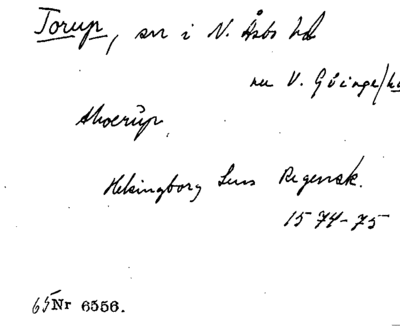 Torup, sn i N. Åsbo hd
nu V. Göinge/hd
Thoerup,
Helsingborg Lens Regensk.
1574-75
65 Nr 6556.